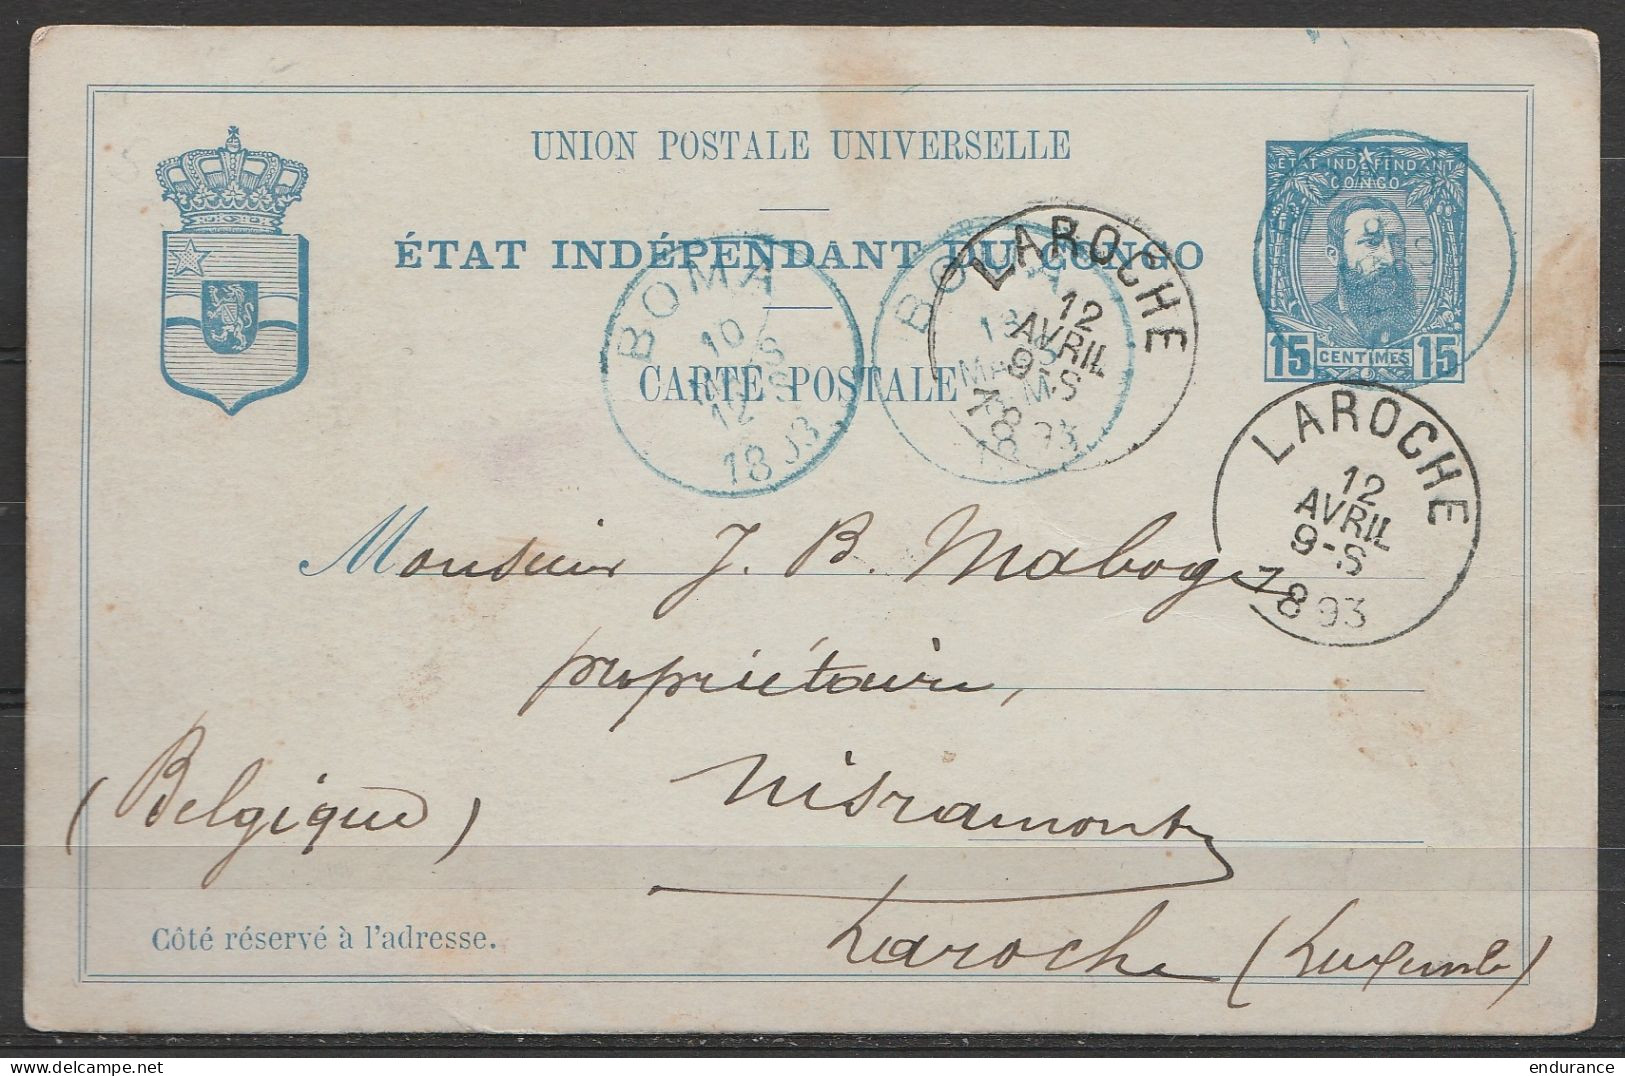 UNION POSTALE UNIVERSELLE
ÉTAT INDÉPENDANT DU CONGO
CARTE POSTALE
ÉTAT INDÉPENDANT
CONGO
15 CENTIMES 15
BOMA
10
12
1893
BOMA
MARS
1893
LAROCHE
12
AVRIL
9-S
1893
LAROCHE
12
AVRIL
9-S
1893
Monsieur J. B. Maboge
propriétaire,
Nisramont
(Belgique)
Laroche (Luxemb)
Côté réservé à l'adresse.
endurance
delcampe.net